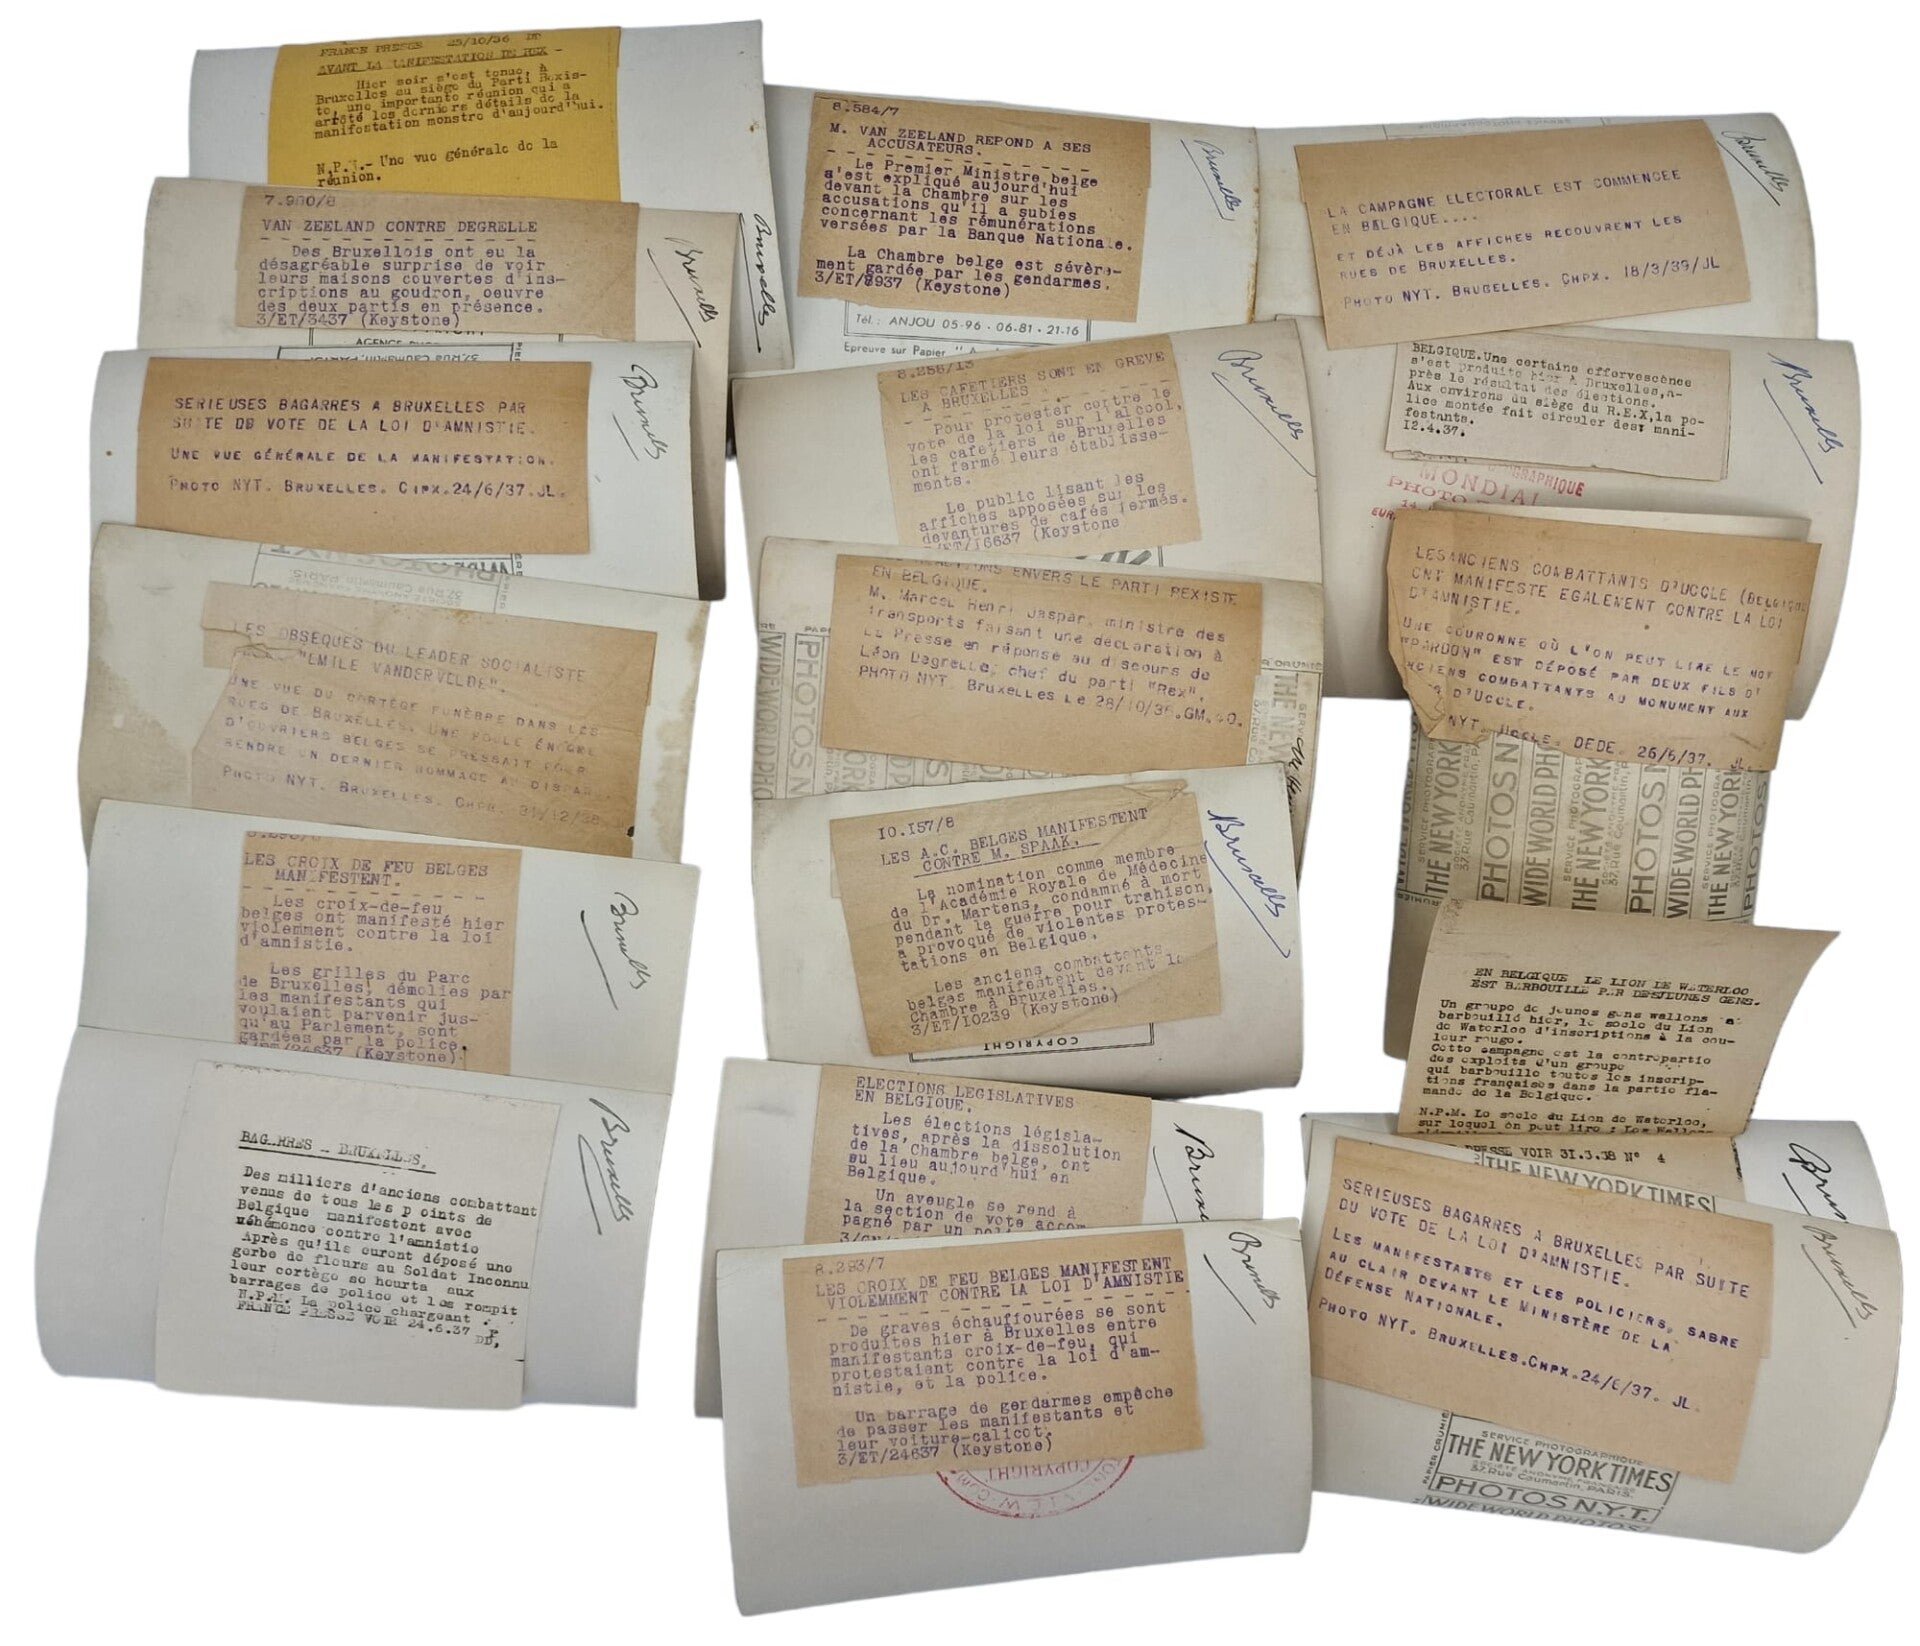 FRANCE PRESSE 25/10/36 DD
AVANT LA MANIFESTATION DE REX -
Hier soir s'est tenue, à
Bruxelles au siège du Parti Rexis-
te, une importante réunion qui a
arrêté les derniers détails de la
manifestation monstre d'aujourd'hui.
N.P.M.- Une vue générale de la
réunion.
Bruxelles
7.980/8
VAN ZEELAND CONTRE DEGRELLE
Des Bruxellois ont eu la
désagréable surprise de voir
leurs maisons couvertes d'ins-
criptions au goudron, oeuvre
des deux partis en présence.
3/ET/3437 (Keystone)
Bruxelles
SERIEUSES BAGARRES A BRUXELLES PAR
SUITE DU VOTE DE LA LOI D'AMNISTIE.
UNE VUE GÉNÉRALE DE LA MANIFESTATION.
PHOTO NYT. BRUXELLES. CHPX.24/6/37.JL.
Bruxelles
LES OBSEQUES DU LEADER SOCIALISTE
"EMILE VANDERVELDE".
UNE VUE DU CORTÈGE FUNÈBRE DANS LES
RUES DE BRUXELLES. UNE FOULE ÉNORME
D'OUVRIERS BELGES SE PRESSAIT POUR
RENDRE UN DERNIER HOMMAGE AU DISPARU.
PHOTO NYT. BRUXELLES. CHPX. 31/12/38 JL
LES CROIX DE FEU BELGES
MANIFESTENT.
Les croix-de-feu
belges ont manifesté hier
violemment contre la loi
d'amnistie.
Les grilles du Parc
de Bruxelles, démolies par
les manifestants qui
voulaient parvenir jus-
qu'au Parlement, sont
gardées par la police.
3/ET/24637 (Keystone).
Bruxelles
BAGARRES - BRUXELLES.
Des milliers d'anciens combattant
venus de tous les points de
Belgique manifestent avec
véhémence contre l'amnistie
Après qu'ils eurent déposé une
gerbe de fleurs au Soldat Inconnu
leur cortège se heurta aux
barrages de police et les rompit
N.P.M. La police chargeant.
FRANCE PRESSE VOIR 24.6.37
DD.
Bruxelles
8.584/7
M. VAN ZEELAND REPOND A SES
ACCUSATEURS.
Le Premier Ministre belge
s'est expliqué aujourd'hui
devant la Chambre sur les
accusations qu'il a subies
concernant les rémunérations
versées par la Banque Nationale.
La Chambre belge est sévère-
ment gardée par les gendarmes.
3/ET/8937 (Keystone)
Tél.: ANJOU 05-96 - 06-81 - 21-16
Epreuve sur Papier
Bruxelles
8.256/13
LES CAFETIERS SONT EN GREVE
A BRUXELLES.
Pour protester contre le
vote de la loi sur l'alcool,
les cafetiers de Bruxelles
ont fermé leurs établisse-
ments.
Le public lisant les
affiches apposées sur les
devantures de cafés fermés.
3/ET/16637 (Keystone
Bruxelles
ENVERS LE PARTI REXISTE
EN BELGIQUE.
M. Marcel Henri Jaspar, ministre des
Transports faisant une déclaration à
La Presse en réponse au discours de
Léon Degrelle, chef du parti "Rex".
PHOTO NYT. Bruxelles le 28/10/36.GM.
10.157/8
LES A.C. BELGES MANIFESTENT
CONTRE M. SPAAK.
La nomination comme membre
de l'Académie Royale de Médecine
du Dr. Martens, condamné à mort
pendant la guerre pour trahison,
a provoqué de violentes protes-
tations en Belgique.
Les anciens combattants
belges manifestent devant la
Chambre à Bruxelles.
3/ET/10239 (Keystone)
COPYRIGHT
Bruxelles
ELECTIONS LEGISLATIVES
EN BELGIQUE.
Les élections législa-
tives, après la dissolution
de la Chambre belge, ont
eu lieu aujourd'hui en
Belgique.
Un aveugle se rend à
la section de vote accom
pagné par un
8.293/7
LES CROIX DE FEU BELGES MANIFESTENT
VIOLEMMENT CONTRE LA LOI D'AMNISTIE
De graves échauffourées se sont
produites hier à Bruxelles entre
manifestants croix-de-feu, qui
protestaient contre la loi d'am-
nistie, et la police.
Un barrage de gendarmes empêche
de passer les manifestants et
leur voiture-calicot.
3/ET/24637 (Keystone)
COPYRIGHT
Bruxelles
LA CAMPAGNE ELECTORALE EST COMMENCEE
EN BELGIQUE....
ET DÉJÀ LES AFFICHES RECOUVRENT LES
RUES DE BRUXELLES.
PHOTO NYT. BRUXELLES. CHPX. 18/3/39/JL
Bruxelles
BELGIQUE.Une certaine effervescence
s'est produite hier à Bruxelles,a-
près le résultat des élections.
Aux environs du siège du R.E.X,la po-
lice montée fait circuler des mani-
festants.
12.4.37.
MONDIAL
PHOTO
Bruxelles
LES ANCIENS COMBATTANTS D'UCCLE (BELGIQUE
ONT MANIFESTE EGALEMENT CONTRE LA LOI
D'AMNISTIE.
UNE COURONNE OÙ L'ON PEUT LIRE LE MOT
"PARDON" EST DÉPOSÉ PAR DEUX FILS D'
ANCIENS COMBATTANTS AU MONUMENT AUX
D'UCCLE.
NYT. UCCLE. DEDE. 26/6/37. JL
THE NEW YORK
PHOTOS N
WIDE WORLD PH
EN BELGIQUE LE LION DE WATERLOO
EST BARBOUILLE PAR DES JEUNES GENS.
Un groupe de jeunes gens wallons a
barbouillé hier, le socle du Lion
de Waterloo d'inscriptions à la cou-
leur rouge.
Cette campagne est la contrepartie
des exploits d'un groupe
qui barbouille toutes les inscrip-
tions françaises dans la partie fla-
mande de la Belgique.
N.P.M. Le socle du Lion de Waterloo,
sur lequel on peut lire : Les Wallons
PRESSE VOIR 31.3.38 N° 4
THE NEW YORK TIMES
SERIEUSES BAGARRES A BRUXELLES PAR SUITE
DU VOTE DE LA LOI D'AMNISTIE.
LES MANIFESTANTS ET LES POLICIERS, SABRE
AU CLAIR DEVANT LE MINISTÈRE DE LA
DÉFENSE NATIONALE.
PHOTO NYT. BRUXELLES.CHPX.24/6/37. JL.
Bruxelles
SERVICE PHOTOGRAPHIQUE
THE NEW YORK TIMES
SOCIÉTÉ ANONYME FRANÇAISE
37, Rue Caumartin, PARIS
PHOTOS N.Y.T.
WIDE WORLD PHOTOS